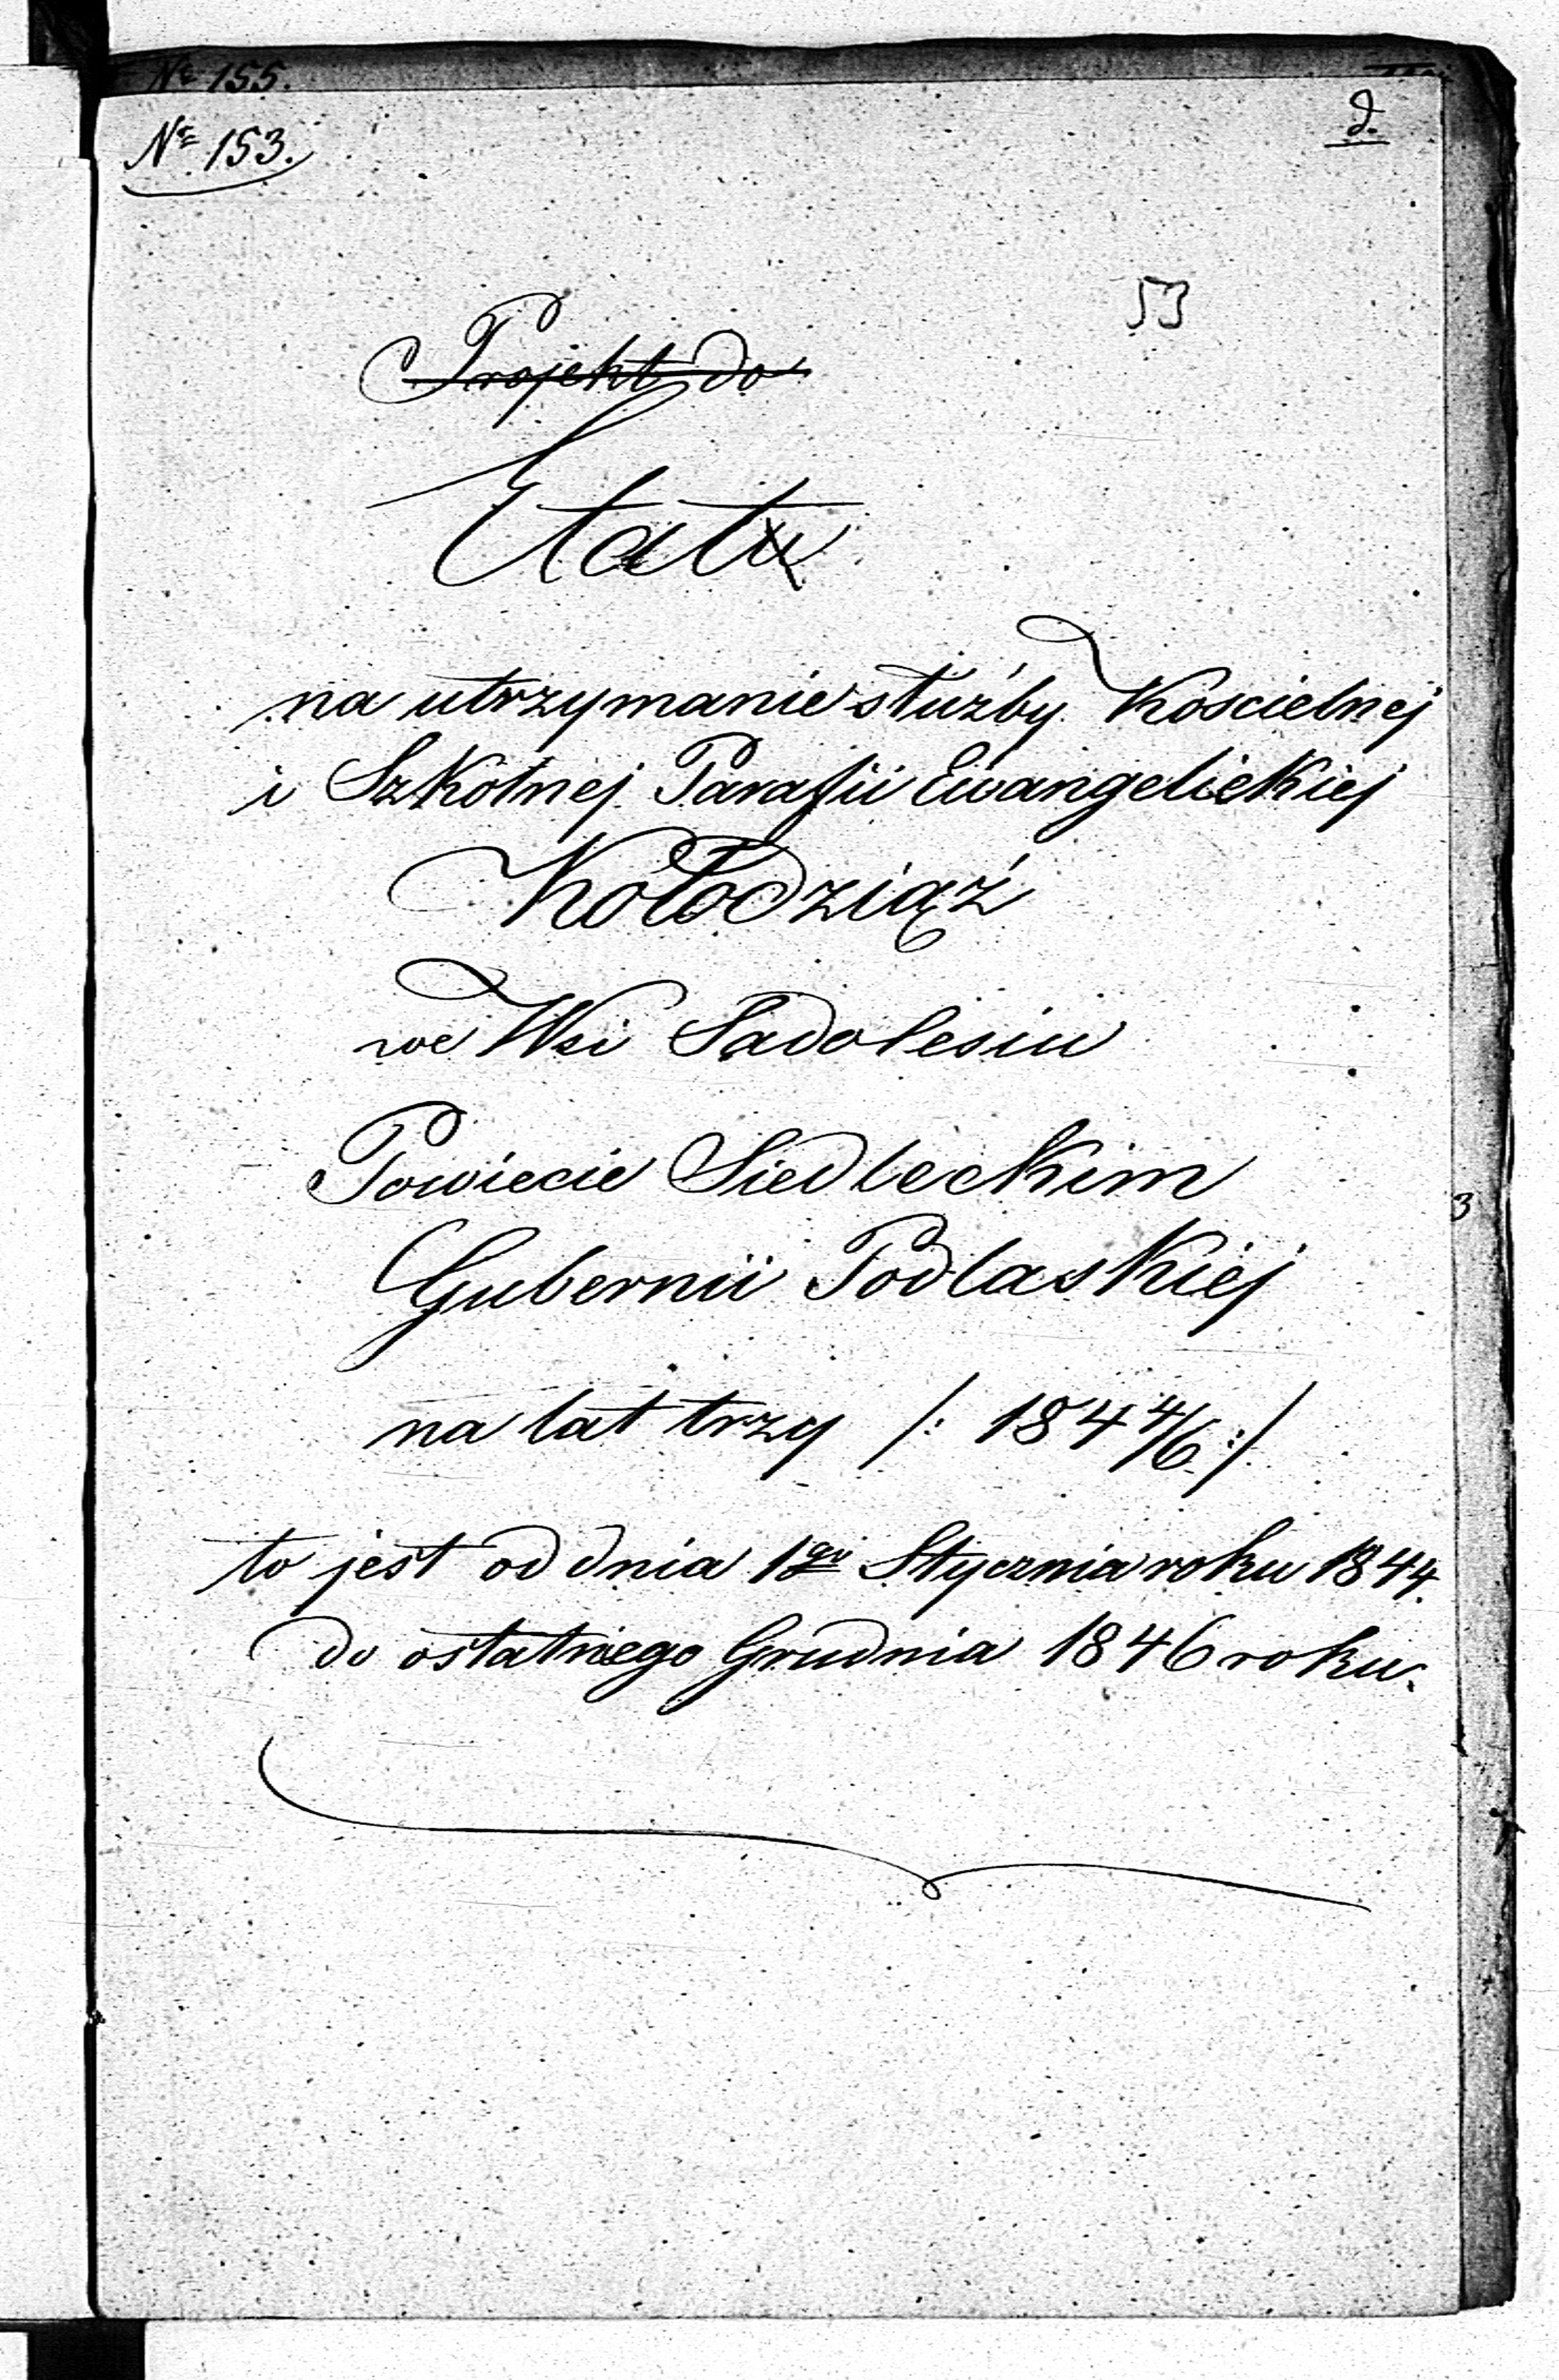 № 155.
№ 153.
2.
53
Projekt do
Etatu
na utrzymanie służby Koscielnej
i Szkolnej Parafii Ewangelickiej
Kołodziąż
we Wsi Sadolesiu
Powiecie Siedleckim
Gubernii Podlaskiej
na lat trzy /: 184 4/6 :/
to jest od dnia 1go Stycznia roku 1844.
do ostatniego Grudnia 1846 roku.
3